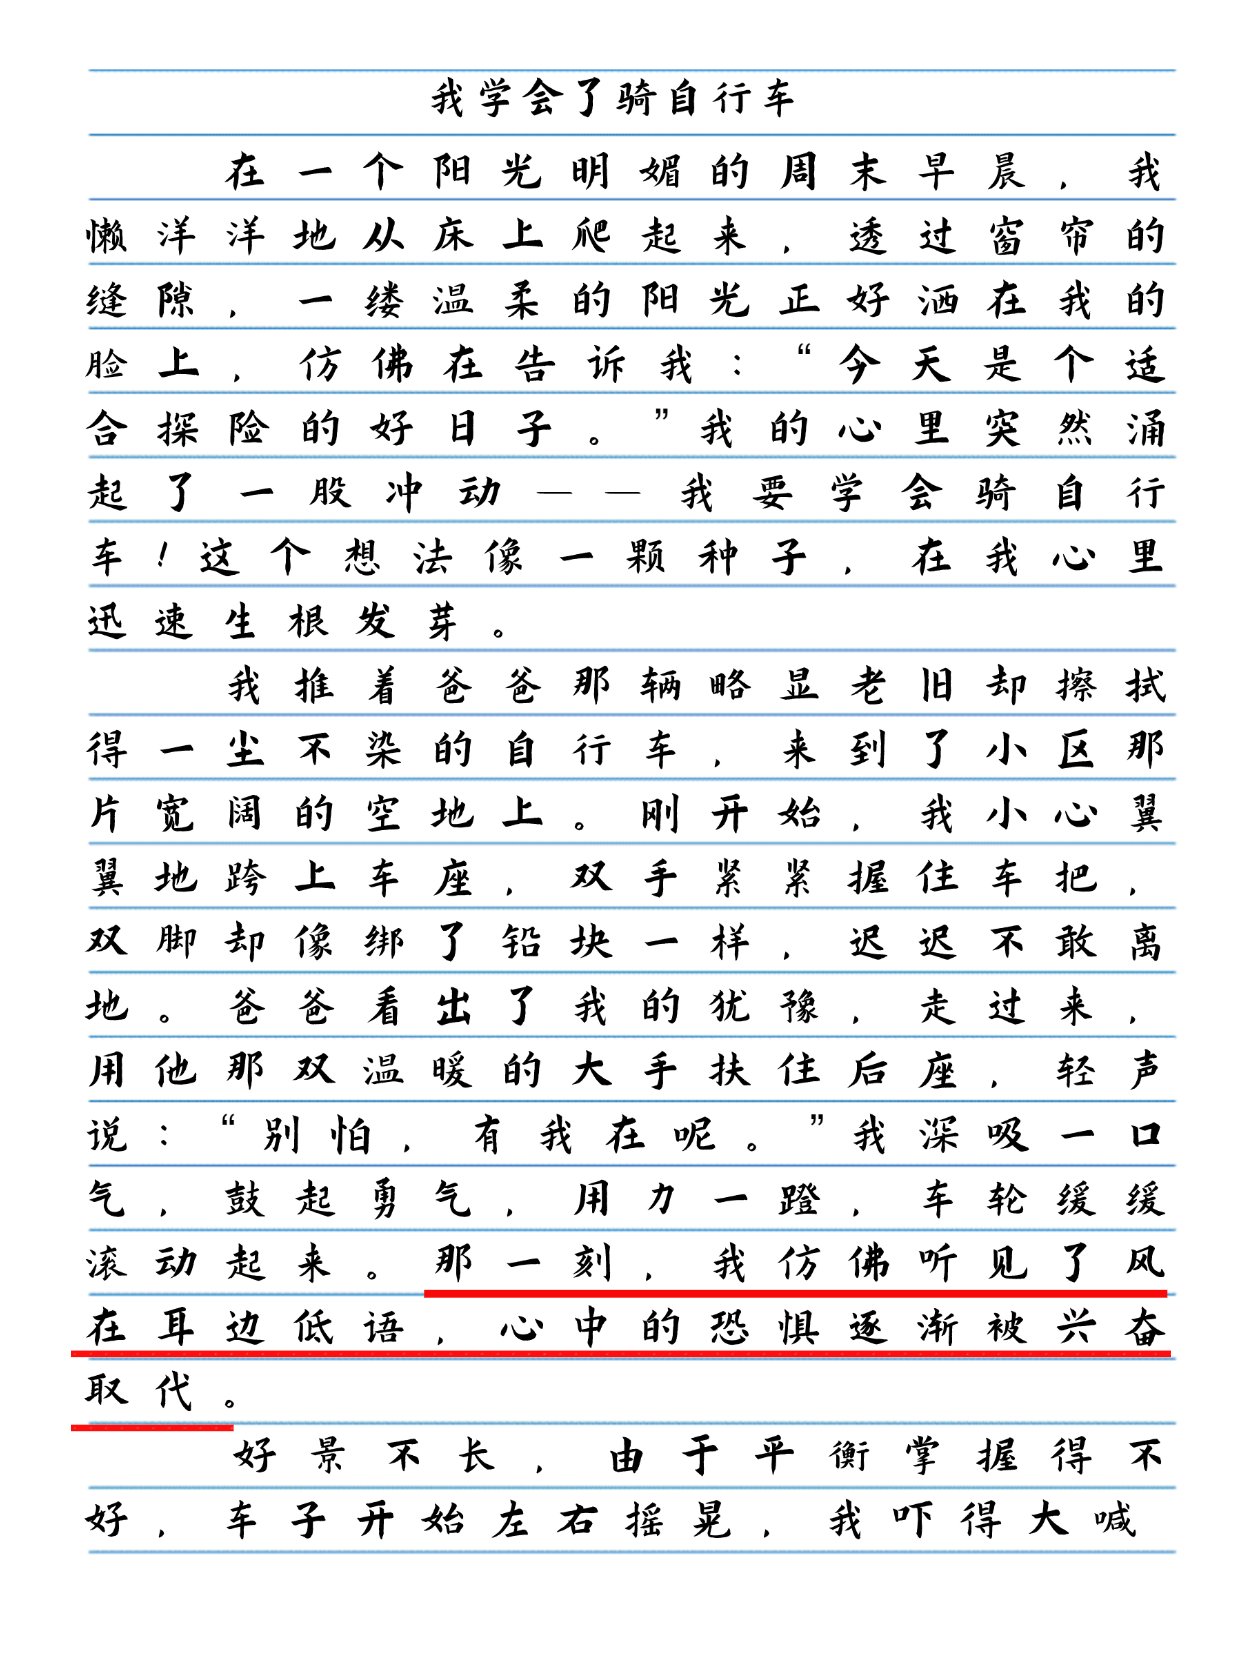 我学会了骑自行车
在一个阳光明媚的周末早晨，我
懒洋洋地从床上爬起来，透过窗帘的
缝隙，一缕温柔的阳光正好洒在我的
脸上，仿佛在告诉我：“今天是个适
合探险的好日子。”我的心里突然涌
起了一股冲动——我要学会骑自行
车！这个想法像一颗种子，在我心里
迅速生根发芽。
我推着爸爸那辆略显老旧却擦拭
得一尘不染的自行车，来到了小区那
片宽阔的空地上。刚开始，我小心翼
翼地跨上车座，双手紧紧握住车把，
双脚却像绑了铅块一样，迟迟不敢离
地。爸爸看出了我的犹豫，走过来，
用他那双温暖的大手扶住后座，轻声
说：“别怕，有我在呢。”我深吸一口
气，鼓起勇气，用力一蹬，车轮缓缓
滚动起来。那一刻，我仿佛听见了风
在耳边低语，心中的恐惧逐渐被兴奋
取代。
好景不长，由于平衡掌握得不
好，车子开始左右摇晃，我吓得大喊